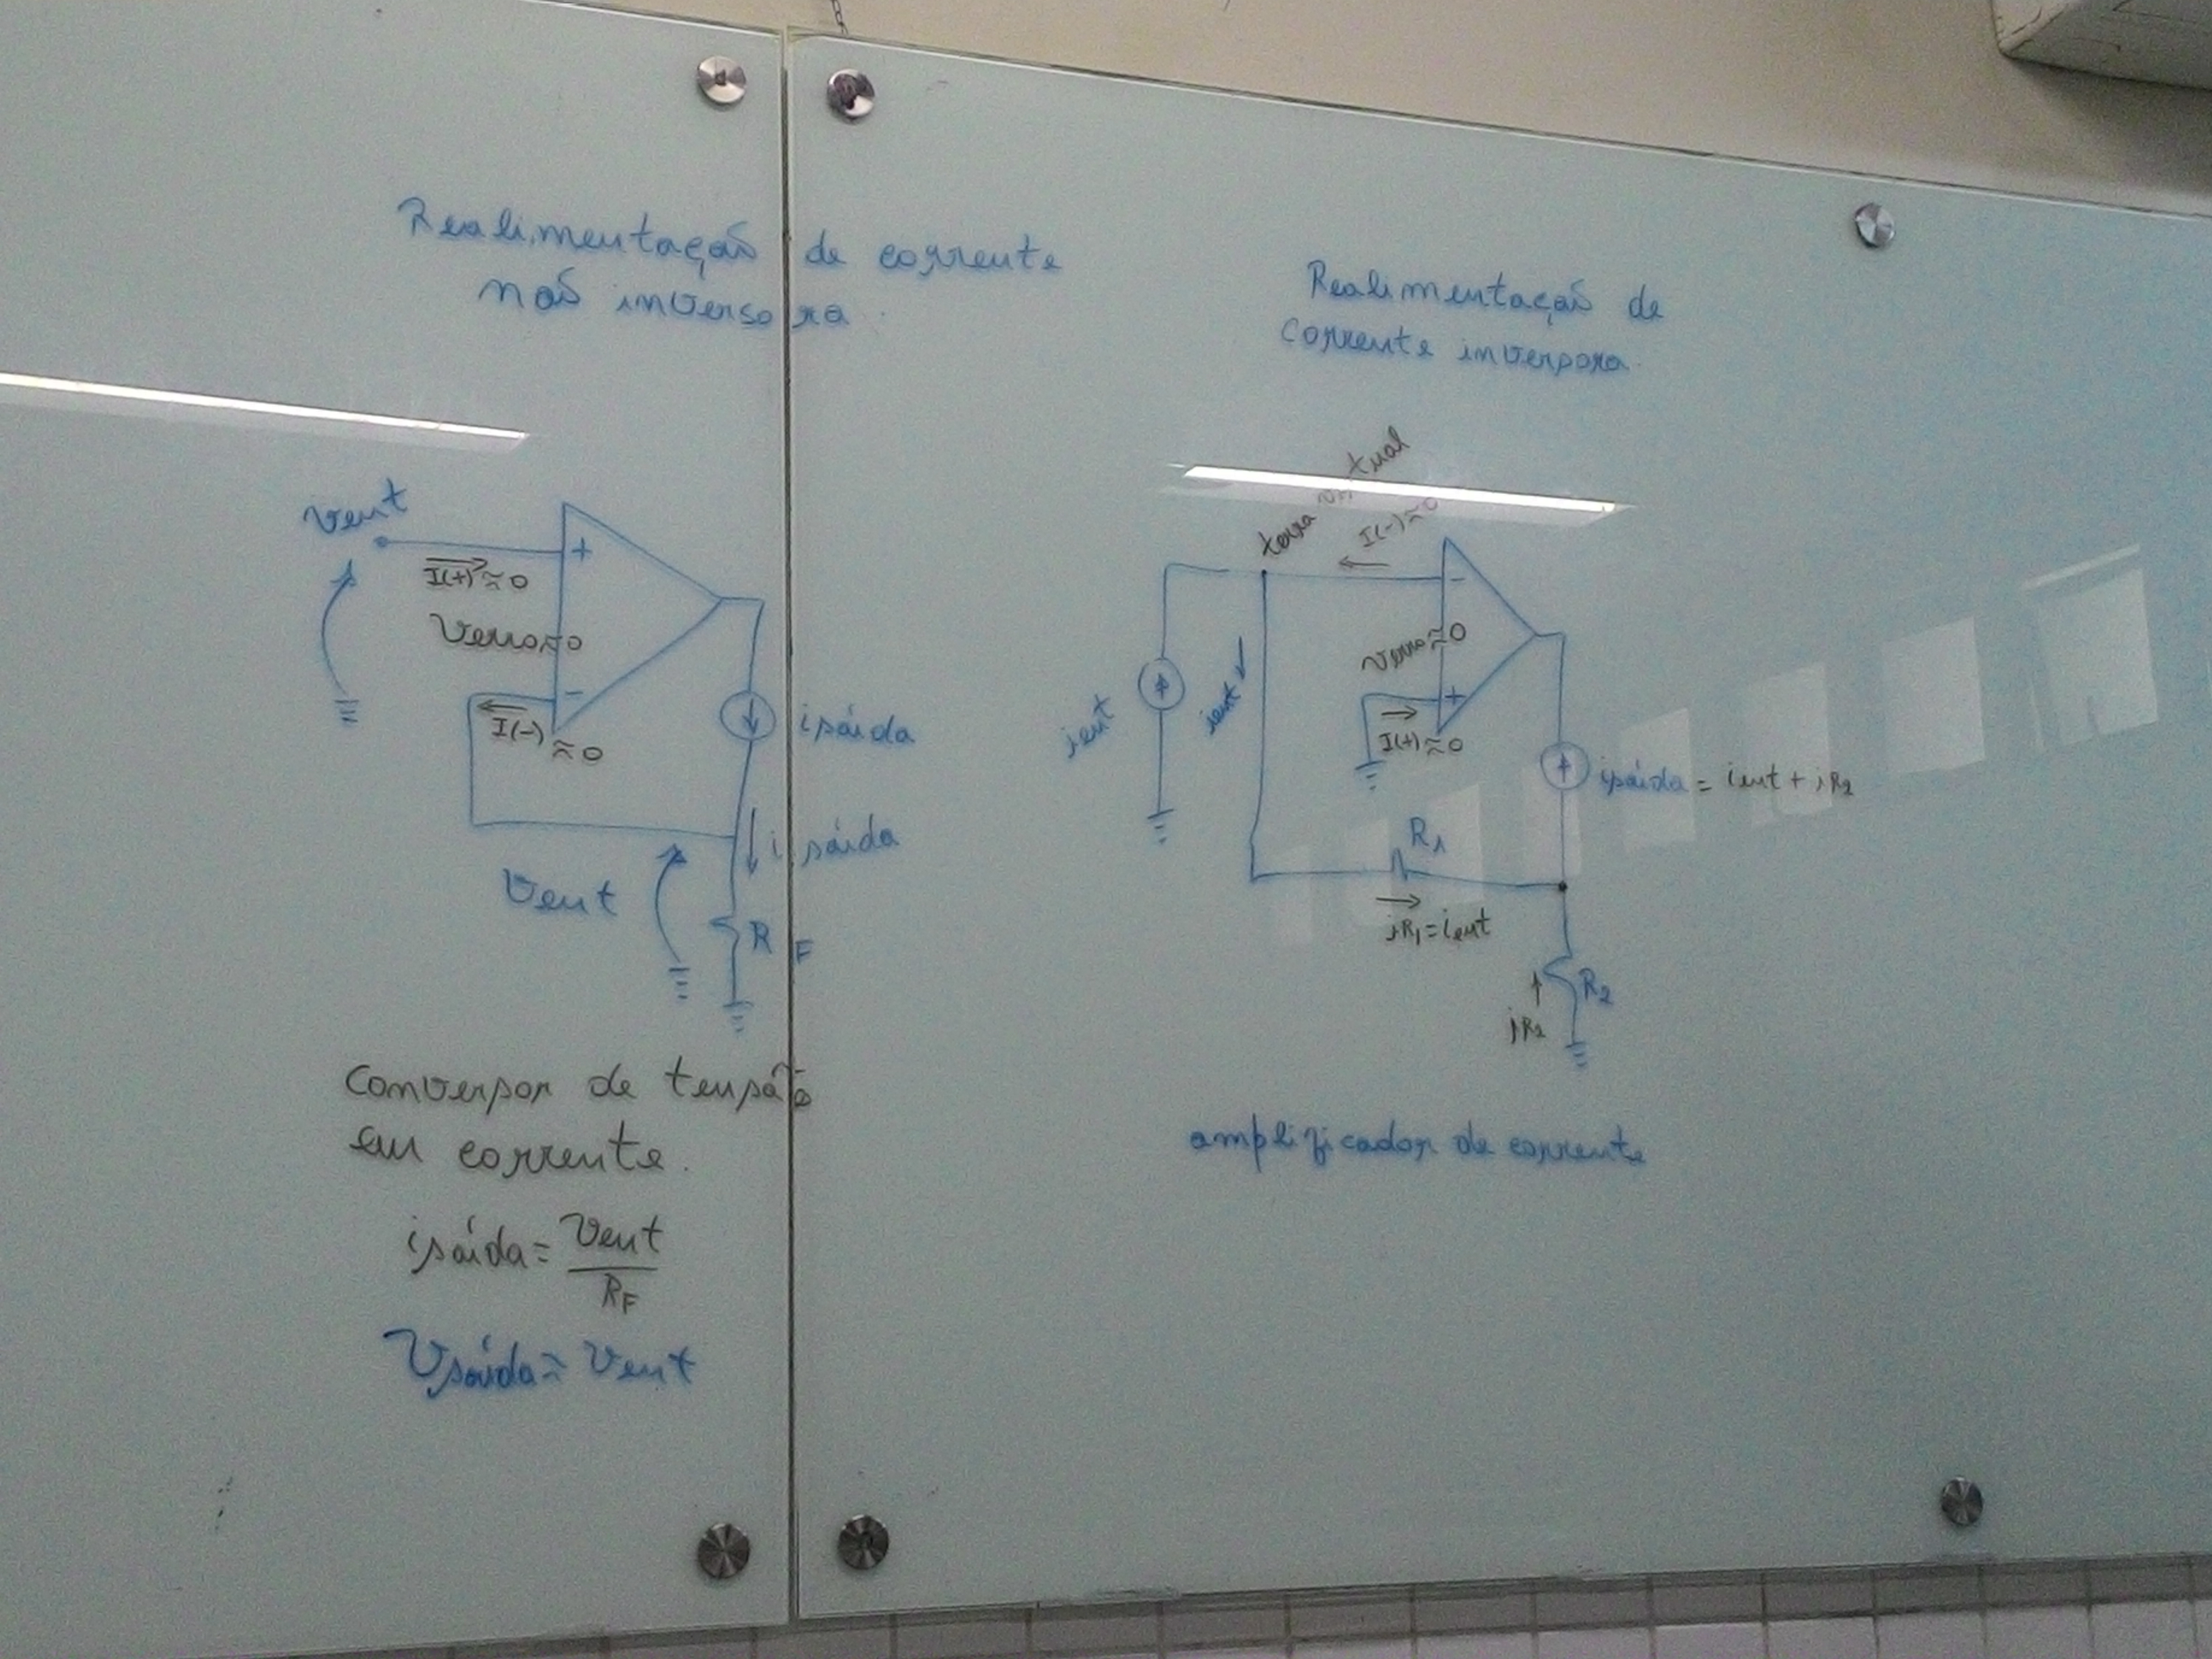 Realimentação de corrente
não inversora.
vent
+
I(+)≈0
Verro≈0
-
I(-)≈0
isaída
isaída
Vent
RF
Conversor de tensão
em corrente.
isaída = Vent
RF
Vsaída ≈ Vent
Realimentação de
corrente inversora.
terra virtual
I(-)≈0
-
Verro≈0
+
I(+)≈0
ient
ient
isaída = ient + iR2
R1
iR1 = ient
R2
iR2
amplificador de corrente